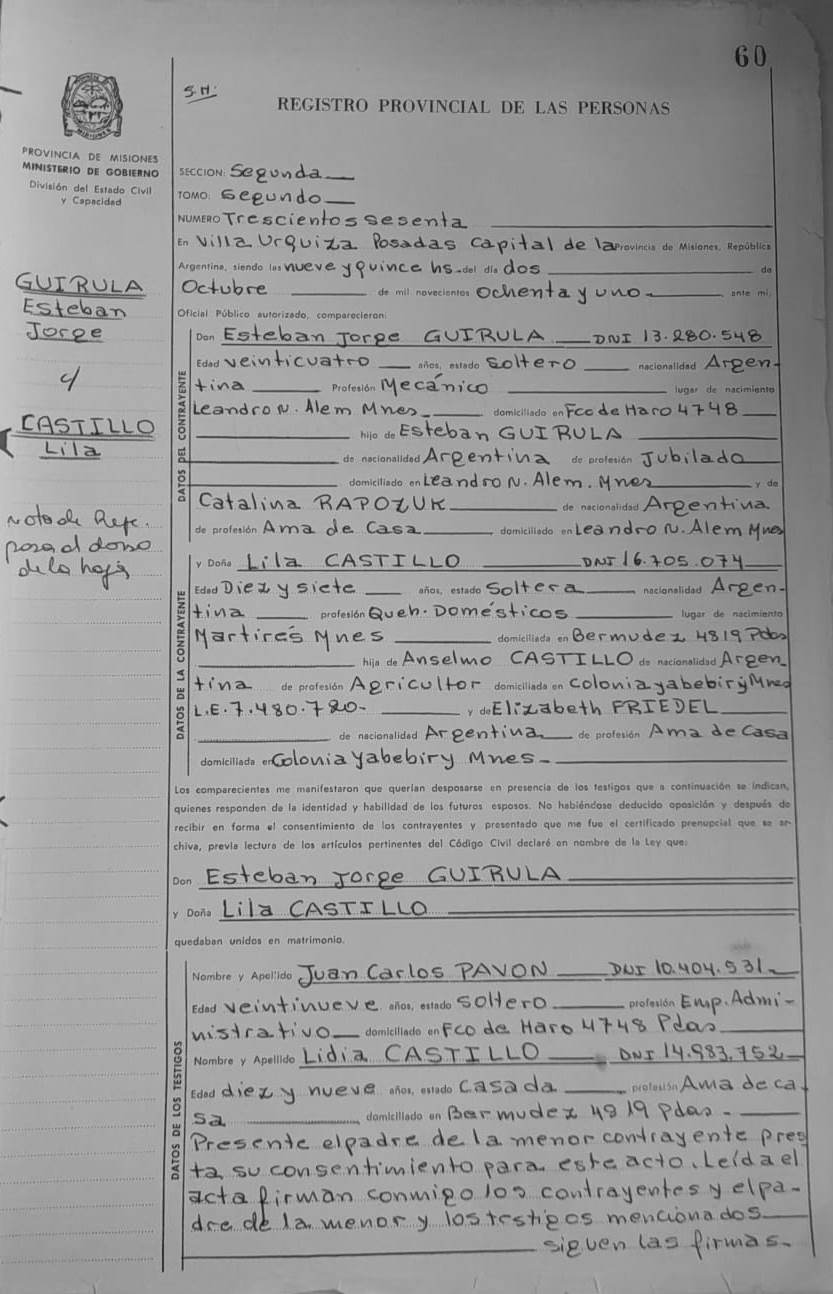 60
S.M.
REGISTRO PROVINCIAL DE LAS PERSONAS
PROVINCIA DE MISIONES
MINISTERIO DE GOBIERNO
División del Estado Civil
y Capacidad
GUIRULA
Esteban
Jorge
y
CASTILLO
Lila
Nota de Refe.
al dorso
de la hoja
SECCION: Segunda
TOMO: Segundo
NUMERO Trescientos sesenta
En Villa Urquiza Posadas Capital de la Provincia de Misiones, República
Argentina, siendo las nueve y quince hs. del día dos de
Octubre de mil novecientos Ochenta y uno ante mí,
Oficial Público autorizado, comparecieron:
DATOS DEL CONTRAYENTE
Don Esteban Jorge GUIRULA DNI 13.280.548
Edad veinticuatro años, estado Soltero nacionalidad Argen-
tina Profesión Mecánico lugar de nacimiento
Leandro N. Alem Mnes. domiciliado en Fco de Haro 4748
hijo de Esteban GUIRULA
de nacionalidad Argentina de profesión Jubilado
domiciliado en Leandro N. Alem. Mnes y de
Catalina RAPOZUK de nacionalidad Argentina
de profesión Ama de Casa domiciliada en Leandro N. Alem Mnes
DATOS DE LA CONTRAYENTE
y Doña Lila CASTILLO DNI 16.705.074
Edad Diez y siete años, estado Soltera nacionalidad Argen-
tina profesión Queh. Domésticos lugar de nacimiento
Martires Mnes domiciliada en Bermudez 4819 Pdas
hija de Anselmo CASTILLO de nacionalidad Argen
tina de profesión Agricultor domiciliado en Colonia yabebiry Mnes
L.E. 7.480.720- y de Elizabeth FRIEDEL
de nacionalidad Argentina de profesión Ama de Casa
domiciliada en Colonia Yabebiry Mnes-
Los comparecientes me manifestaron que querían desposarse en presencia de los testigos que a continuación se indican,
quienes responden de la identidad y habilidad de los futuros esposos. No habiéndose deducido oposición y después de
recibir en forma el consentimiento de los contrayentes y presentado que me fue el certificado prenupcial que se ar-
chiva, previa lectura de los artículos pertinentes del Código Civil declaré en nombre de la Ley que:
Don Esteban Jorge GUIRULA
y Doña Lila CASTILLO
quedaban unidos en matrimonio.
DATOS DE LOS TESTIGOS
Nombre y Apellido Juan Carlos PAVON DNI 10.404.531
Edad veintinueve años, estado Soltero profesión Emp. Admi-
nistrativo domiciliado en Fco de Haro 4748 Pdas
Nombre y Apellido Lidia CASTILLO DNI 14.983.752
Edad diez y nueve años, estado Casada profesión Ama de ca
sa domiciliado en Bermudez 4819 Pdas-
Presente el padre de la menor contrayente pres
ta su consentimiento para este acto. Leída el
acta firman conmigo los contrayentes y el pa-
dre de la menor y los testigos mencionados
siguen las firmas-